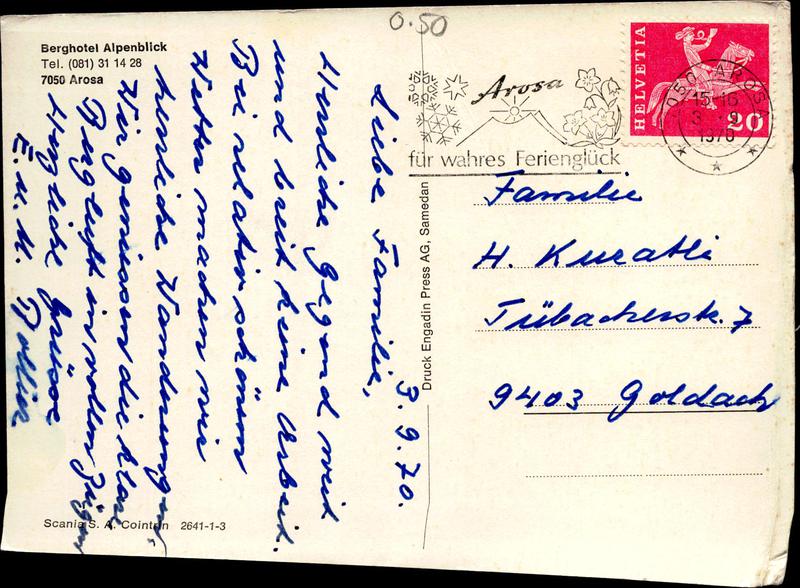 Berghotel Alpenblick
Tel. (081) 31 14 28
7050 Arosa
0.50
Arosa
für wahres Ferienglück
HELVETIA
20
7050 AROSA
15.-16
3.-9
1970
3.9.70.
Liebe Familie,
Herrliche Gegend weit
und breit keine Arbeit.
Bei relativ schönem
Wetter machen wir
herrliche Wandrungen,
Wir geniessen die klare
Bergluft in vollen Zügen
Herzliche Grüsse
E. u. M.
Druck Engadin Press AG, Samedan
Familie
H. Kuratli
Tübacherstr. 7
9403 Goldach
Scania S. A. Cointrin 2641-1-3